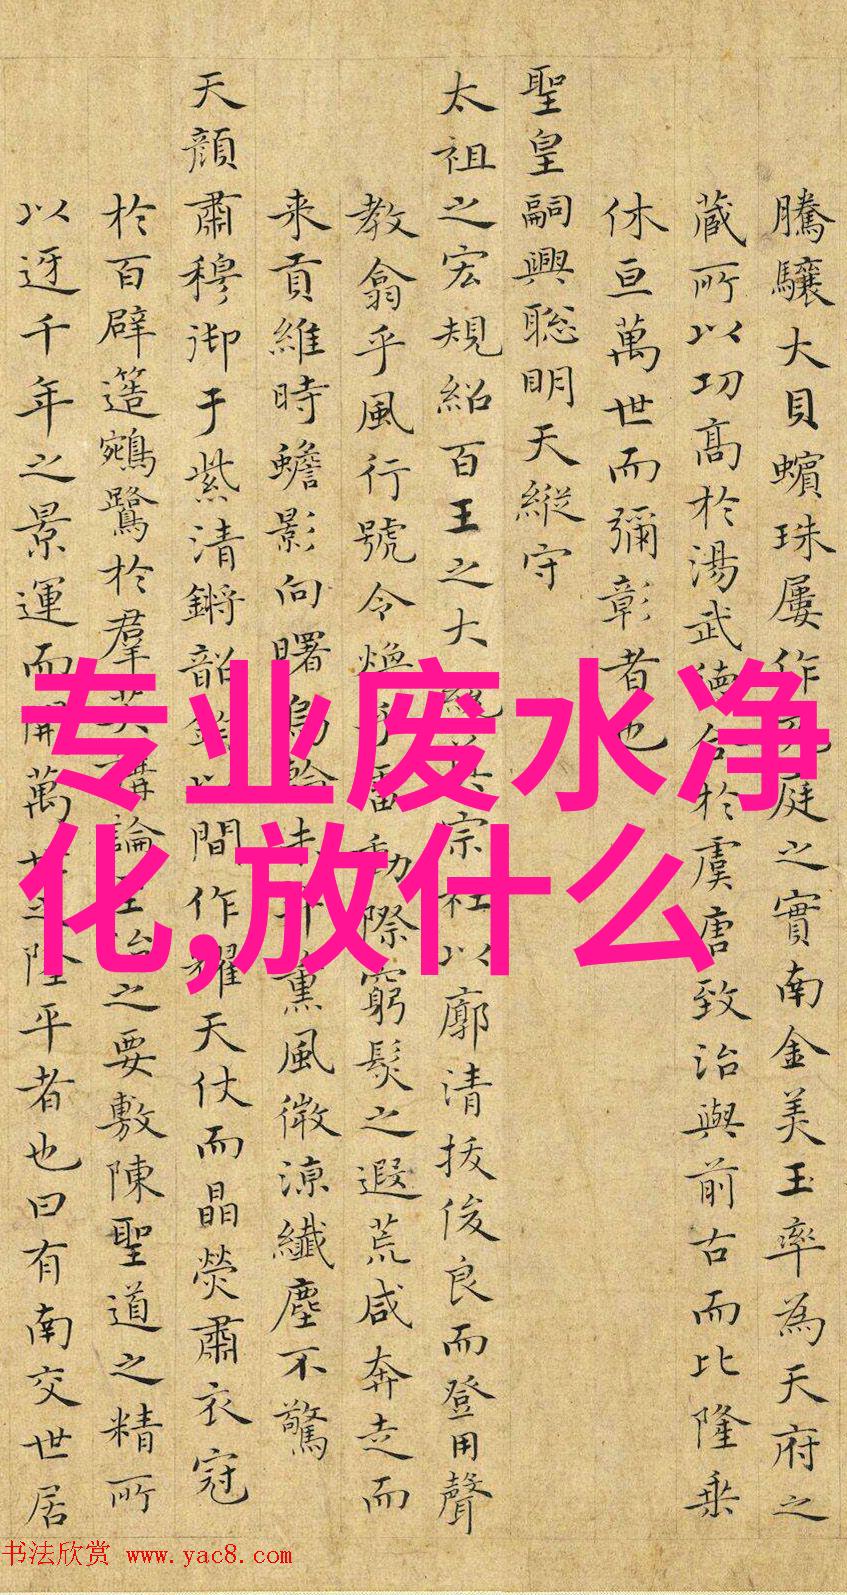 騰驤大貝蠙珠屢作充庭之實南金美玉率為天府之
蔵所以功髙於湯武徳合於虞唐致治與前古而比隆乗
休亘萬世而彌彰者也
聖皇嗣興聡明天縦守
太祖之宏規紹百王之大宗社以廓清拔俊良而登用聲
教翕乎風行號令煥乎雷動際窮髮之遐荒咸奔走而
来貢維時蟾影向曙烏輪未升熏風微涼纎塵不驚
天顔肅穆御于紫清鏘韶間作耀天仗而晶熒肅衣冠
於百辟簉鵷鷺於羣英講論至治之要敷陳聖道之精所
以迓千年之景運而開萬世之陞平者也曰有南交世居
专业废水净
化,放什么
书法欣赏 www.yac8.com